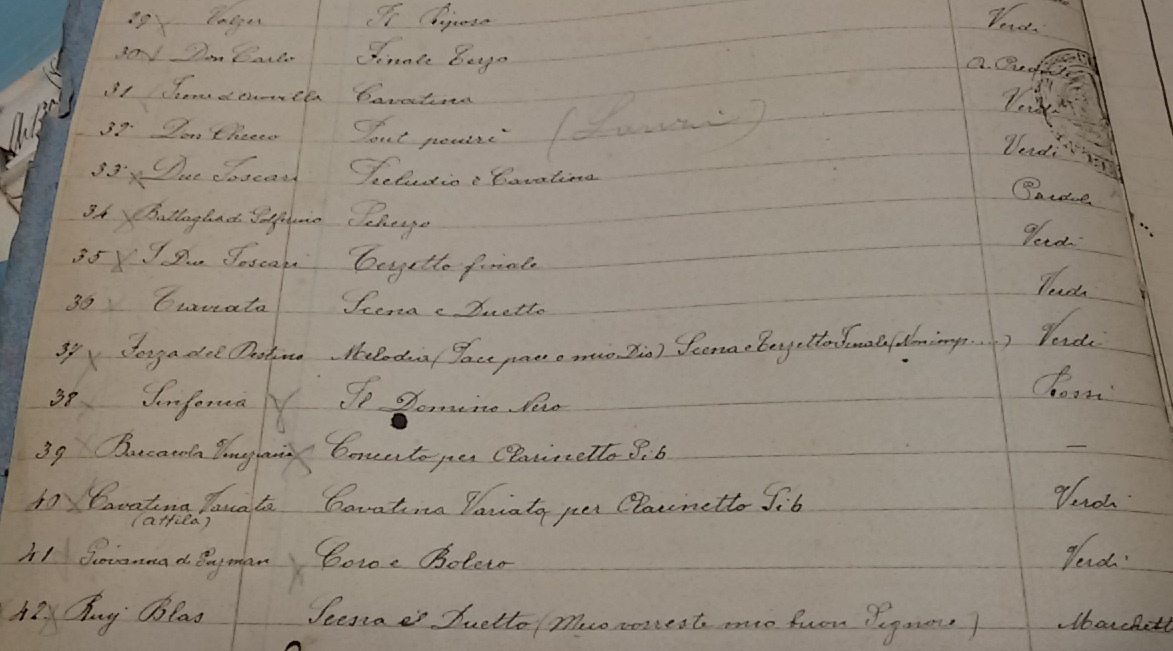 29 Valzer Il Riposo Verdi
30 Don Carlo Finale Terzo
31 Cavatina Verdi
32 Don Checco Pout pourrì Verdi
33 Due Foscari Preludio e Cavatina
34 Battaglia di Solferino Scherzo
35 I Due Foscari Terzetto finale Verdi
36 Traviata Scena e Duetto Verdi
37 Forza del Destino Melodia (Pace pace o mio Dio) Scena e Terzetto Finale (Non imp....) Verdi
38 Sinfonia Il Domino Nero Rossi
39 Barcarola Veneziana Concerto per Clarinetto Sib —
40 Cavatina Variata Cavatina Variata per Clarinetto Sib Verdi
(Attila)
41 Giovanna di Guzman Coro e Bolero Verdi
42 Ruy Blas Scena e Duetto (Mio vorreste mio buon Signore)